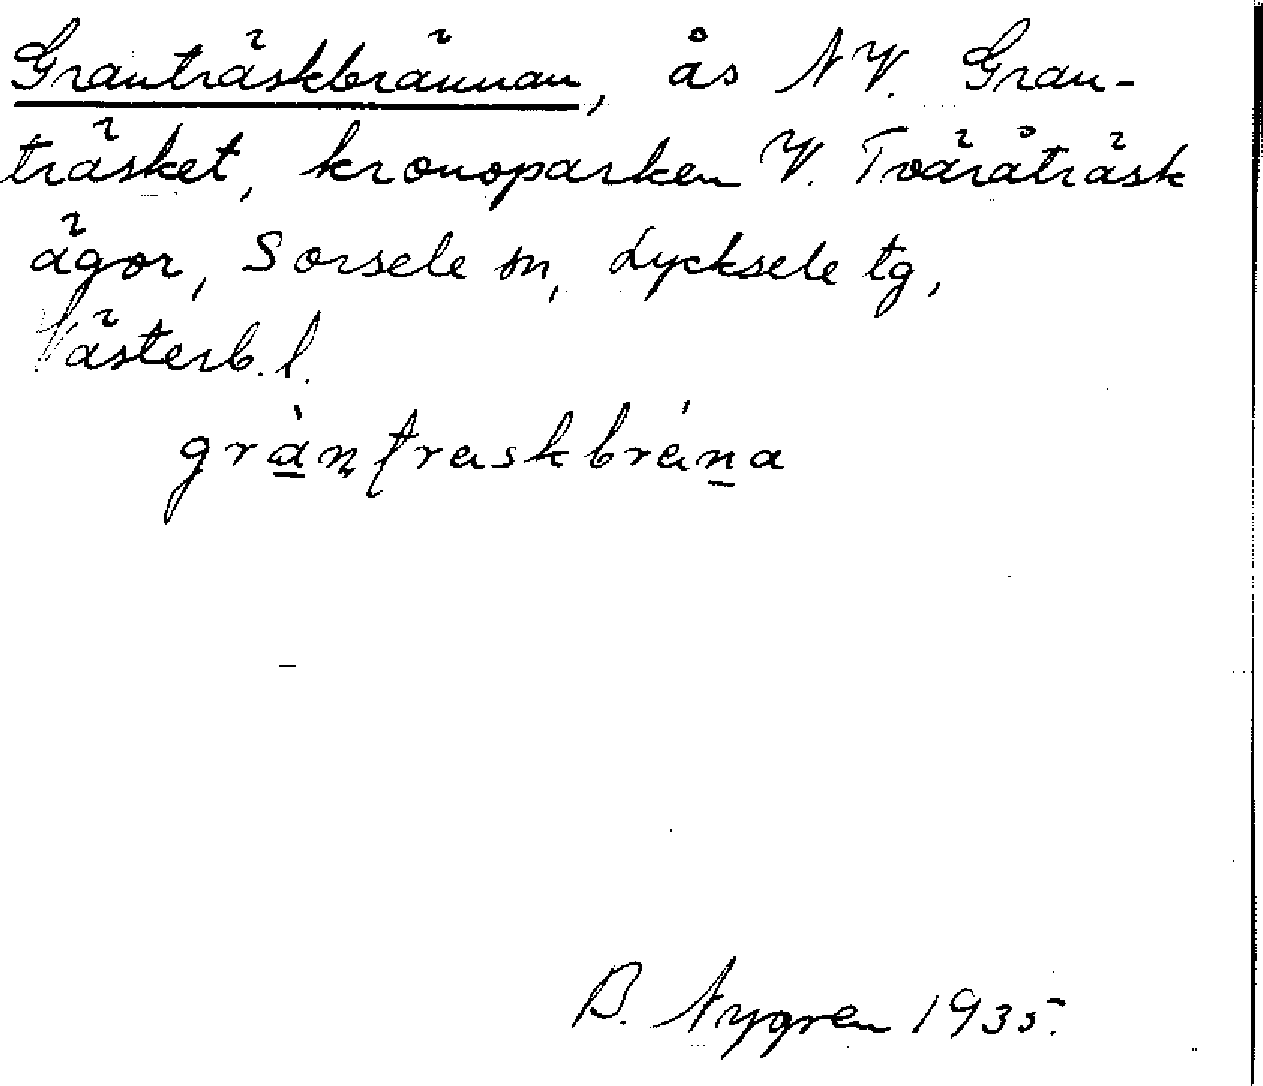 Granträskbrännan, ås NV. Gran-
träsket, kronoparken V. Tväråträsk
ägor, Sorsele sn, Lycksele tg,
Västerb. l.
B. Nygren 1935.